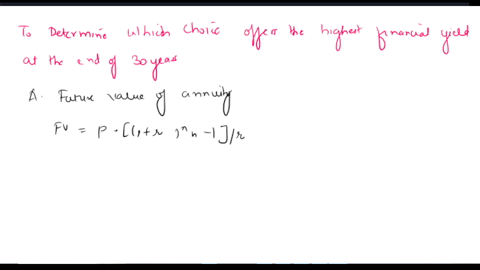 To Determine which choice offers the highest financial yield
at the end of 30 years
A. Future value of annuity
FV = P · [(1+r)^n n - 1]/r